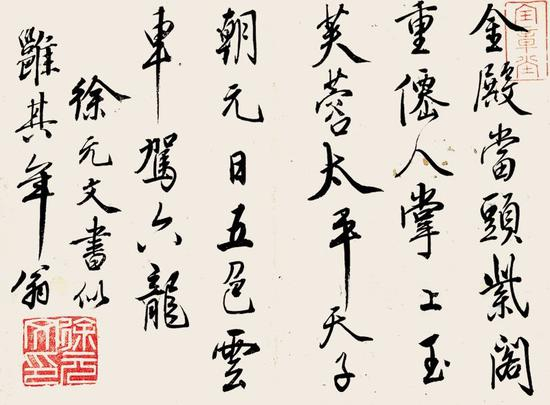 金殿當頭紫閣
重僊人掌上玉
芙蓉太平天子
朝元日五色雲
車駕六龍
徐元文書似
雖其年翁
徐元文印